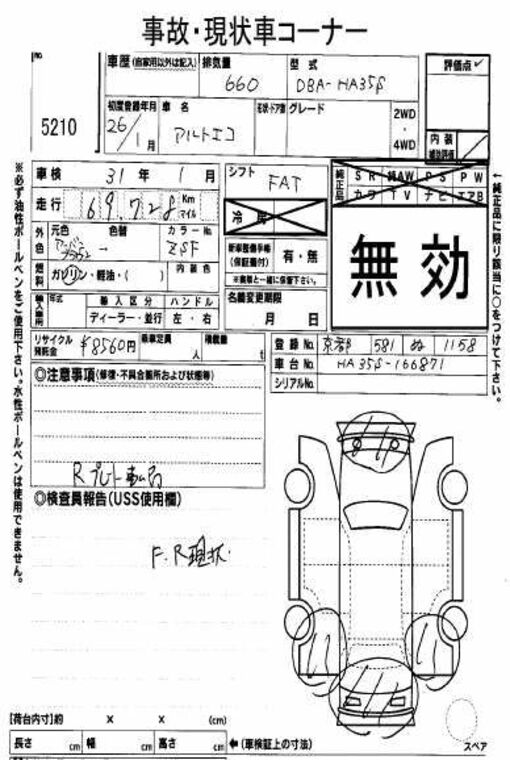 事故・現状車コーナー
No
5210
車歴 (自家用以外は記入)
排気量
660
型式
DBA-HA35S
評価点
初度登録年月
26/1月
車名
アルトエコ
形状・ドア数
グレード
2WD
・
4WD
内装
補助評価
車検 31年 1月
走行 69,728 Km マイル
シフト FAT
冷房
純正品 SR 純AW PS PW
カワ TV ナビ エアB
無効
外色 元色 色替 カラーNo.
→ ZSF
燃料 ガソリン・軽油・( ) 内装色
新車整備手帳
(保証書付) 有・無
※実際と一緒に保管下さい。
輸入車用 年式 輸入区分 ハンドル
ディーラー・並行 左・右
名義変更期限
月 日
リサイクル預託金 ¥8560円 乗車定員 人 積載量 t
登録No. 京都 581 ぬ 1158
車台No. HA35S-166871
シリアルNo.
◎注意事項 (修復・不具合箇所および状態等)
◎検査員報告(USS使用欄)
F.R現状.
※必ず油性ボールペンをご使用下さい。水性ボールペンは使用できません。
←純正品に限り該当に○をつけて下さい。
スペア
【荷台内寸】約 × × (cm)
長さ cm 幅 cm 高さ cm ←(車検証上の寸法)